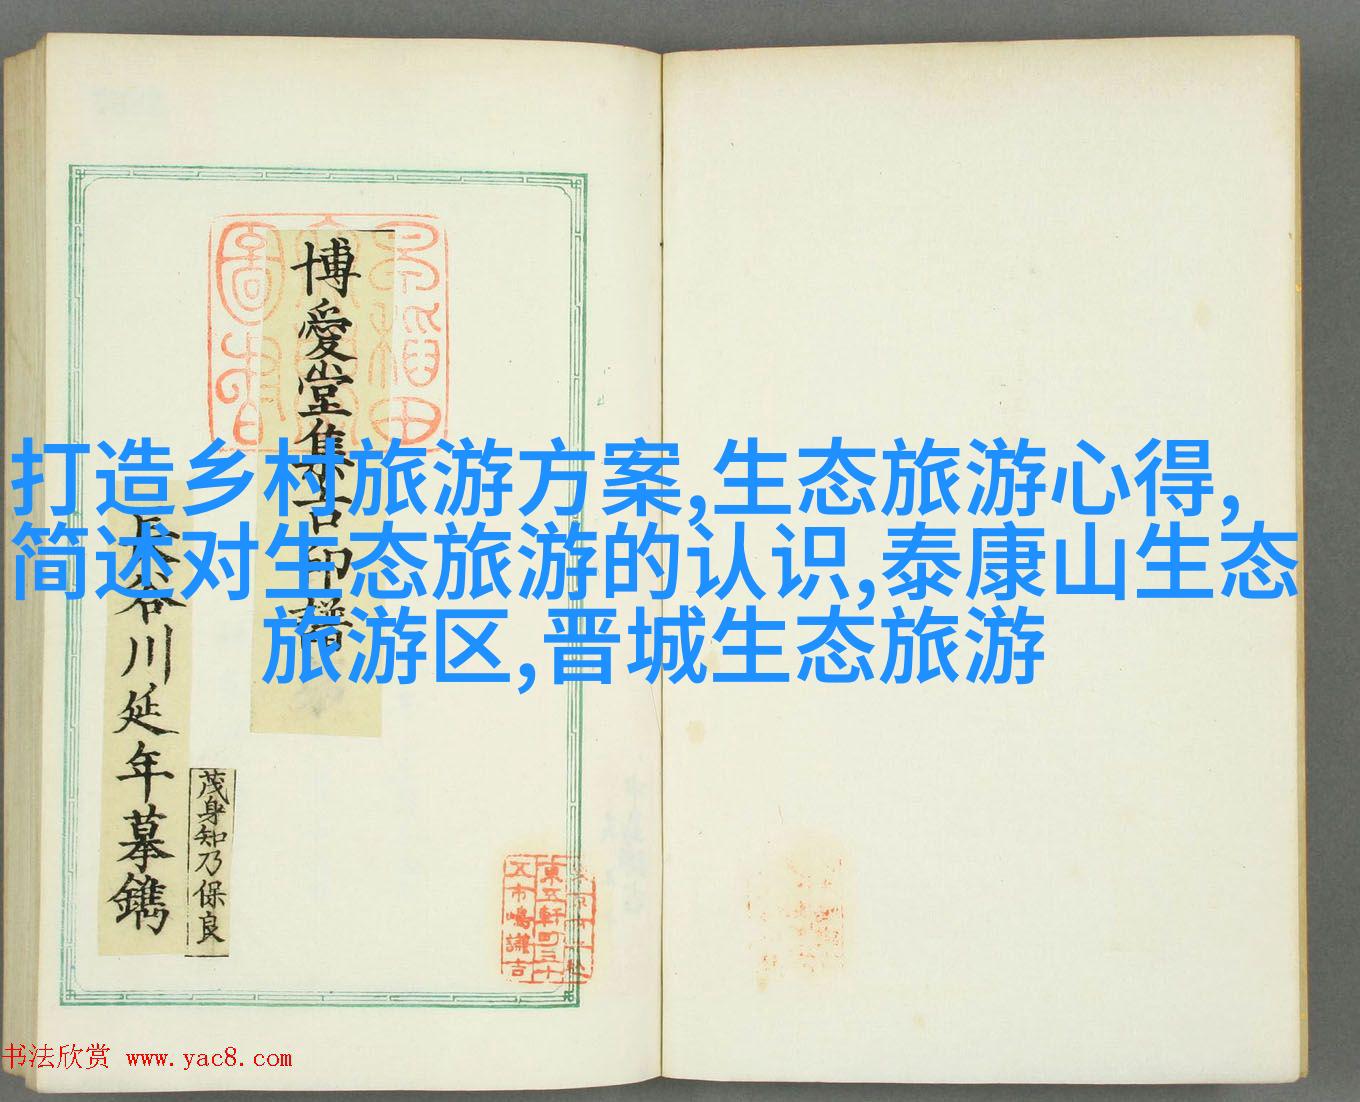 博愛堂集古印譜
長谷川延年摹鐫
茂身知乃保良
東五軒町三十
五市嶋謙吉
打造乡村旅游方案,生态旅游心得,
简述对生态旅游的认识,泰康山生态
旅游区,晋城生态旅游
书法欣赏 www.yac8.com